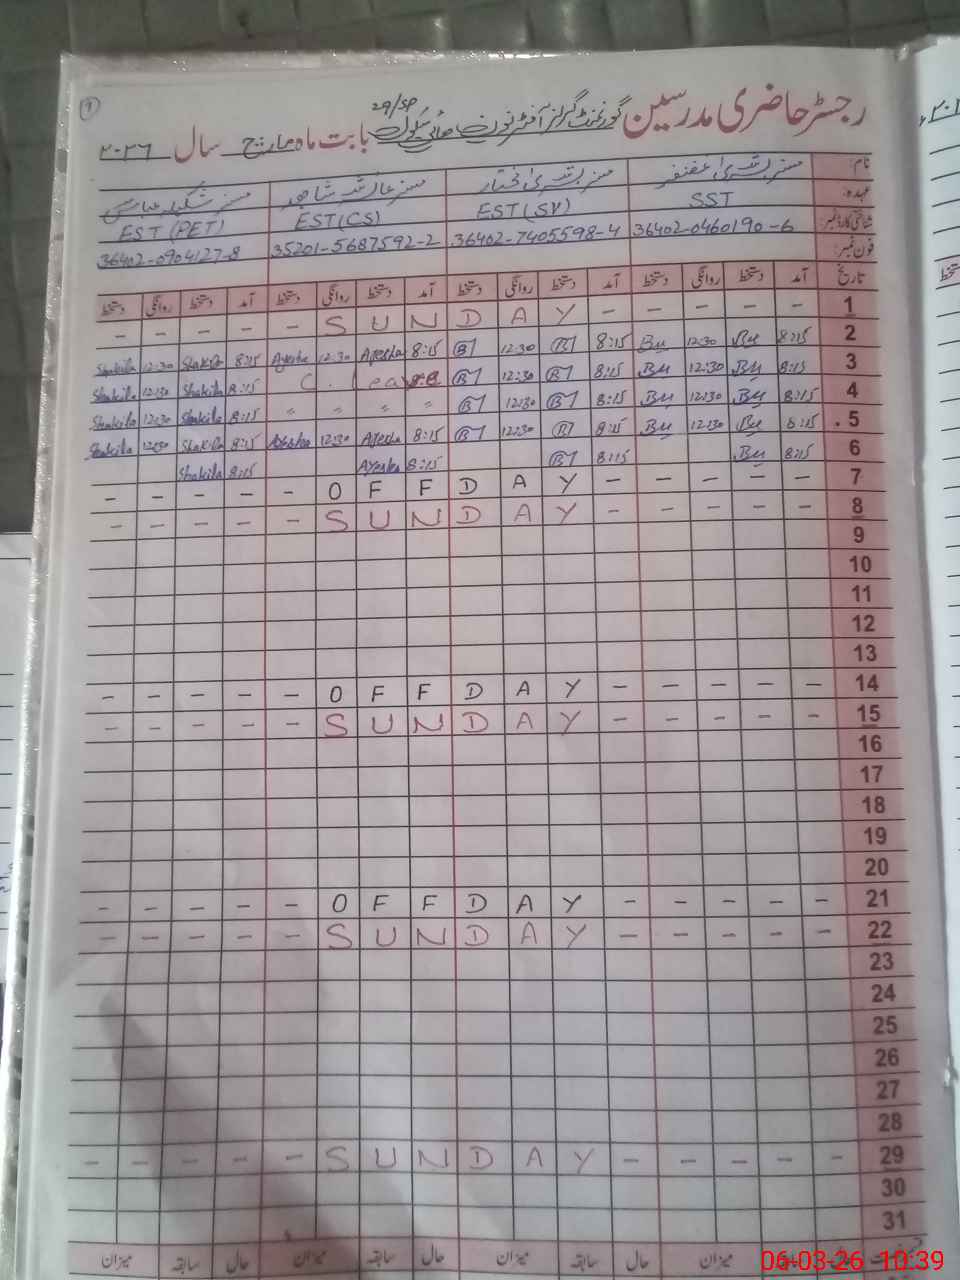 1
رجسٹر حاضری مدرسین گورنمنٹ گرلز آفٹرنون ہائی سکول 29/SP بابت ماہ مارچ سال ۲۰۲۶
نام: مسز بشریٰ غضنفر مسز بشریٰ مختار مسز عائشہ شاہد مسز شکیلہ عباس
عہدہ: SST EST(SV) EST(CS) EST (PET)
شناختی کارڈ نمبر: 36402-0460190-6 36402-7405598-4 35201-5687592-2 36402-0904127-8
فون نمبر:
تاریخ آمد دستخط روانگی دستخط آمد دستخط روانگی دستخط آمد دستخط روانگی دستخط آمد دستخط روانگی دستخط
- - - - - S U N D A Y - - - - - 1
Shakila 12:30 Shakila 8:15 Ayesha 12:30 Ayesha 8:15 12:30 8:15 12:30 8:15 2
Shakila 12:30 Shakila 8:15 C. Leave 12:30 8:15 12:30 8:15 3
Shakila 12:30 Shakila 8:15 " " " " 12:30 8:15 12:30 8:15 4
Shakila 12:30 Shakila 8:15 Ayesha 12:30 Ayesha 8:15 12:30 8:15 12:30 8:15 5
Shakila 8:15 Ayesha 8:15 8:15 8:15 6
- - - - - O F F D A Y - - - - - 7
- - - - - S U N D A Y - - - - - 8
9
10
11
12
13
- - - - - O F F D A Y - - - - - 14
- - - - - S U N D A Y - - - - - 15
16
17
18
19
20
- - - - - O F F D A Y - - - - - 21
- - - - - S U N D A Y - - - - - 22
23
24
25
26
27
28
- - - - - S U N D A Y - - - - - 29
30
31
میزان سابقہ حال میزان سابقہ حال میزان سابقہ حال میزان
06-03-26 10:39